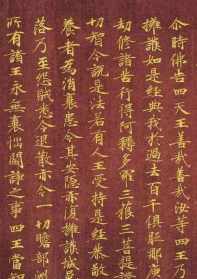 尒時佛告四天王善哉善哉汝等四王乃
擁護如是經典我於過去百千俱胝那庾
劫修諸苦行得阿耨多羅三藐三菩提證
切智今說是法若有人王受持是經恭敬
養者為消衰患令其安隱亦復擁護城邑
落乃至怨賊悉令退散亦令一切贍部洲
所有諸王永無衰惱鬪諍之事四王當